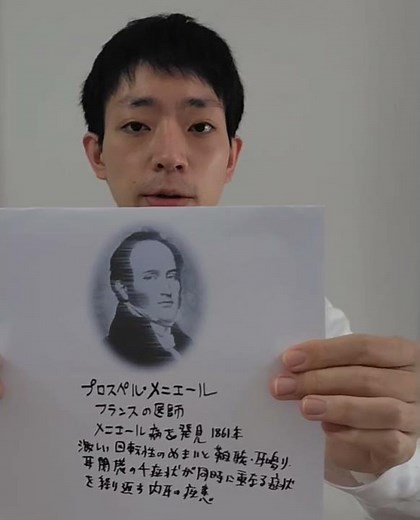 プロスペル・メニエール
フランスの医師
メニエール病を発見 1861年
激しい回転性のめまいと難聴・耳鳴り
耳閉感の4症状が同時に重なる症状
を繰り返す内耳の疾患